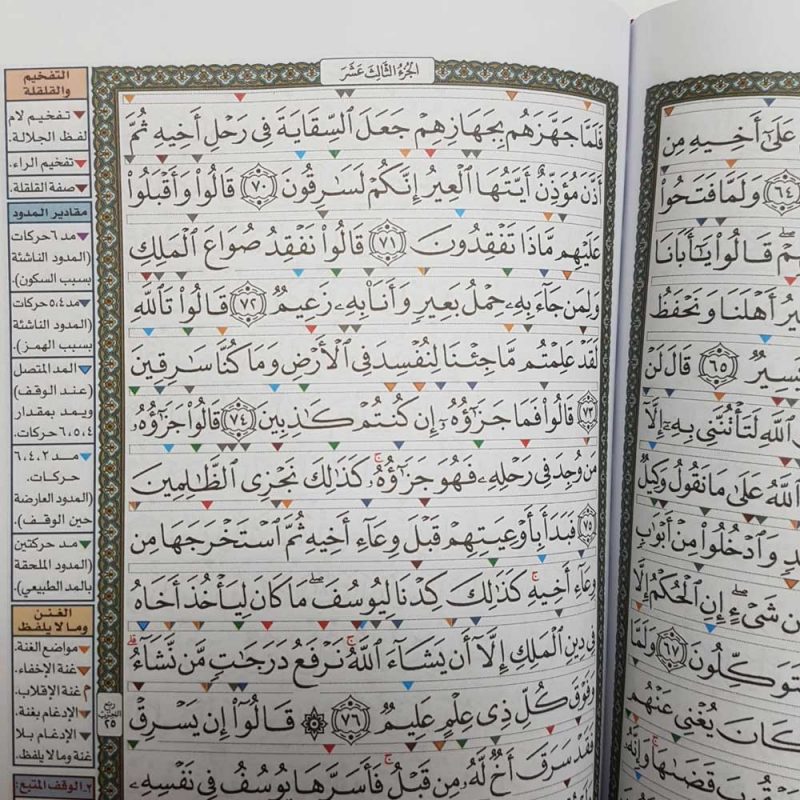 الجزء الثالث عشر
عَلَىٰٓ أَخِيهِ مِن
٦٤ وَلَمَّا فَتَحُوا۟
قَالُوا۟ يَٰٓأَبَانَا
أَهْلَنَا وَنَحْفَظُ
٦٥ قَالَ لَنْ
ٱللَّهِ لَتَأْتُنَّنِى بِهِۦٓ إِلَّآ
ٱللَّهُ عَلَىٰ مَا نَقُولُ وَكِيلٌ
وَٱدْخُلُوا۟ مِنْ أَبْوَٰبٍ
مِن شَىْءٍ ۖ إِنِ ٱلْحُكْمُ إِلَّا
٦٧ وَلَمَّا
كَانَ يُغْنِى عَنْهُم
قَضَىٰهَا ۚ وَإِنَّهُۥ
فَلَمَّا جَهَّزَهُم بِجَهَازِهِمْ جَعَلَ ٱلسِّقَايَةَ فِى رَحْلِ أَخِيهِ ثُمَّ
أَذَّنَ مُؤَذِّنٌ أَيَّتُهَا ٱلْعِيرُ إِنَّكُمْ لَسَٰرِقُونَ ٧٠ قَالُوا۟ وَأَقْبَلُوا۟
عَلَيْهِم مَّاذَا تَفْقِدُونَ ٧١ قَالُوا۟ نَفْقِدُ صُوَاعَ ٱلْمَلِكِ
وَلِمَن جَآءَ بِهِۦ حِمْلُ بَعِيرٍ وَأَنَا۠ بِهِۦ زَعِيمٌ ٧٢ قَالُوا۟ تَٱللَّهِ
لَقَدْ عَلِمْتُم مَّا جِئْنَا لِنُفْسِدَ فِى ٱلْأَرْضِ وَمَا كُنَّا سَٰرِقِينَ
٧٣ قَالُوا۟ فَمَا جَزَٰٓؤُهُۥٓ إِن كُنتُمْ كَٰذِبِينَ ٧٤ قَالُوا۟ جَزَٰٓؤُهُۥ
مَن وُجِدَ فِى رَحْلِهِۦ فَهُوَ جَزَٰٓؤُهُۥ ۚ كَذَٰلِكَ نَجْزِى ٱلظَّٰلِمِينَ
٧٥ فَبَدَأَ بِأَوْعِيَتِهِمْ قَبْلَ وِعَآءِ أَخِيهِ ثُمَّ ٱسْتَخْرَجَهَا مِن
وِعَآءِ أَخِيهِ ۚ كَذَٰلِكَ كِدْنَا لِيُوسُفَ ۖ مَا كَانَ لِيَأْخُذَ أَخَاهُ
فِى دِينِ ٱلْمَلِكِ إِلَّآ أَن يَشَآءَ ٱللَّهُ ۚ نَرْفَعُ دَرَجَٰتٍ مَّن نَّشَآءُ ۗ
وَفَوْقَ كُلِّ ذِى عِلْمٍ عَلِيمٌ ٧٦ ۞ قَالُوٓا۟ إِن يَسْرِقْ
فَقَدْ سَرَقَ أَخٌ لَّهُۥ مِن قَبْلُ ۚ فَأَسَرَّهَا يُوسُفُ فِى نَفْسِهِۦ
التفخيم
والقلقلة
تفخيم لام
لفظ الجلالة.
تفخيم الراء.
صفة القلقلة.
مقادير المدود
مد ٦ حركات
(المدود الناشئة
بسبب السكون).
مد ٤،٥ حركات
(المدود الناشئة
بسبب الهمز).
المد المتصل
(عند الوقف)
ويمد بمقدار
٤، ٥، ٦ حركات.
مد ٢، ٤، ٦
حركات.
(المدود العارضة
حين الوقف).
مد حركتين
(المدود الملحقة
بالمد الطبيعي).
الغنن
وما لا يلفظ
مواضع الغنة.
غنة الإخفاء.
غنة الإقلاب.
الإدغام بغنة.
الإدغام بلا
غنة وما لا يلفظ.
٢ـ الوقف المتبع:
ربع
الحزب
٢٥